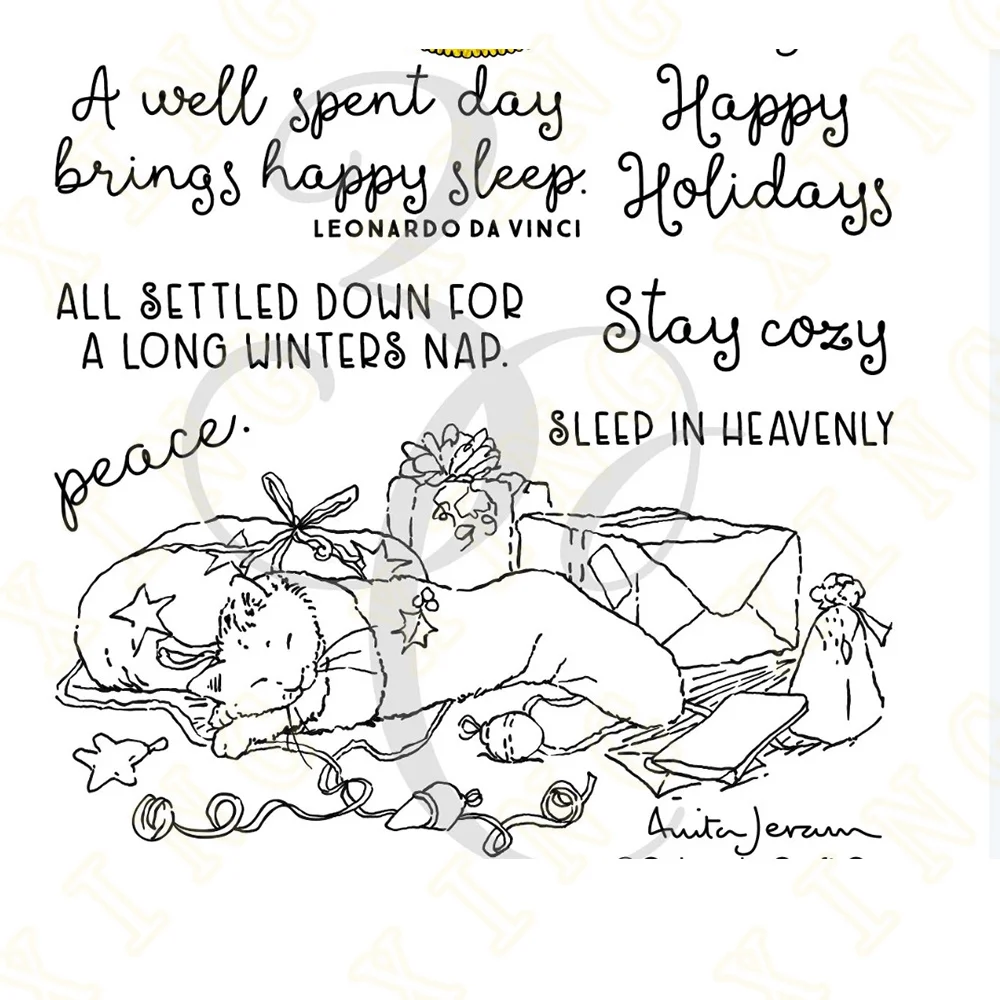 A well spent day
brings happy sleep.
LEONARDO DA VINCI
Happy
Holidays
ALL SETTLED DOWN FOR
A LONG WINTERS NAP.
Stay cozy
SLEEP IN HEAVENLY
peace.
Anita Jeram
XING